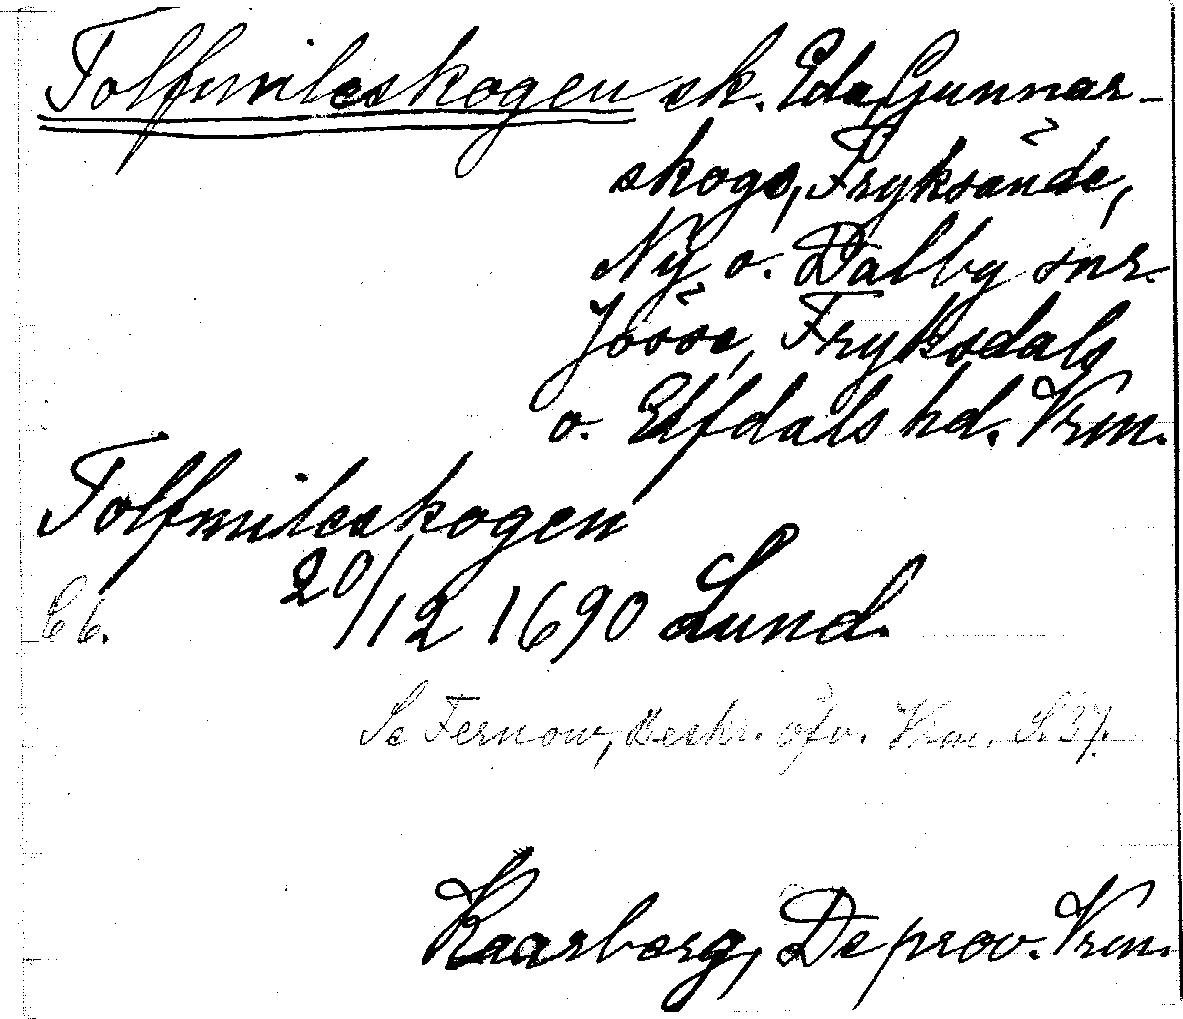 Tolfmileskogen sk. Eda, Gunnar-
skogs, Fryksände,
Ny o. Dalby snr.
Jösse, Fryksdals
o. Elfdals hd. Vrm.
Tolfmileskogen
20/12 1690 Lund.
C6.
Se Fernow, Beskr. öfv. Vrm. S. 37.
Kaarberg, De prov. Vrm.